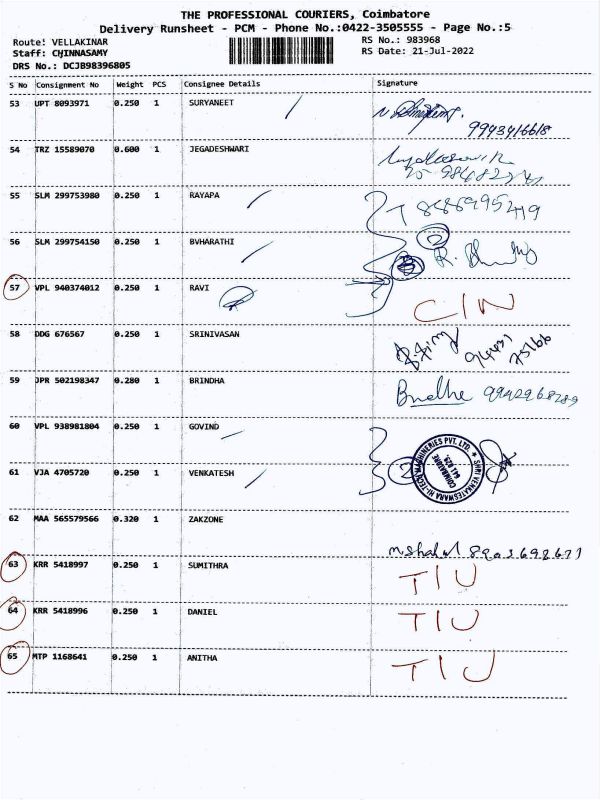 THE PROFESSIONAL COURIERS, Coimbatore
Delivery Runsheet - PCM - Phone No.:0422-3505555 - Page No.:5
Route: VELLAKINAR RS No.: 983968
Staff: CHINNASAMY RS Date: 21-Jul-2022
DRS No.: DCJB98396805
S No Consignment No Weight PCS Consignee Details Signature
53 UPT 8093971 0.250 1 SURYANEET
9943416618
54 TRZ 15589070 0.600 1 JEGADESHWARI
55 SLM 299753980 0.250 1 RAYAPA
56 SLM 299754150 0.250 1 BVHARATHI
2
57 VPL 940374012 0.250 1 RAVI
58 DDG 676567 0.250 1 SRINIVASAN
59 JPR 502198347 0.280 1 BRINDHA
60 VPL 938981804 0.250 1 GOVIND
SHRI VENKATESWARA HI-TECH MACHINERIES PVT. LTD. ★
COIMBATORE
641 029.
61 VJA 4705720 0.250 1 VENKATESH 2
62 MAA 565579566 0.320 1 ZAKZONE
63 KRR 5418997 0.250 1 SUMITHRA TIU
64 KRR 5418996 0.250 1 DANIEL TIU
65 MTP 1168641 0.250 1 ANITHA TIU